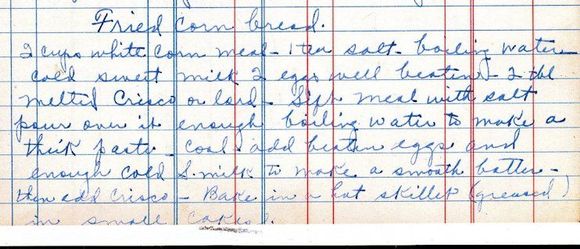 Fried corn bread.
2 cups white corn meal - 1 tea salt - boiling water -
cold sweet milk 2 eggs well beaten - 2 tbl
melted Crisco or lard - Sift meal with salt
pour over it enough boiling water to make a
thick paste - Cool - add beaten eggs and
enough cold S. milk to make a smooth batter -
then add Crisco - Bake in a hot skillet (greased)
in small cakes.